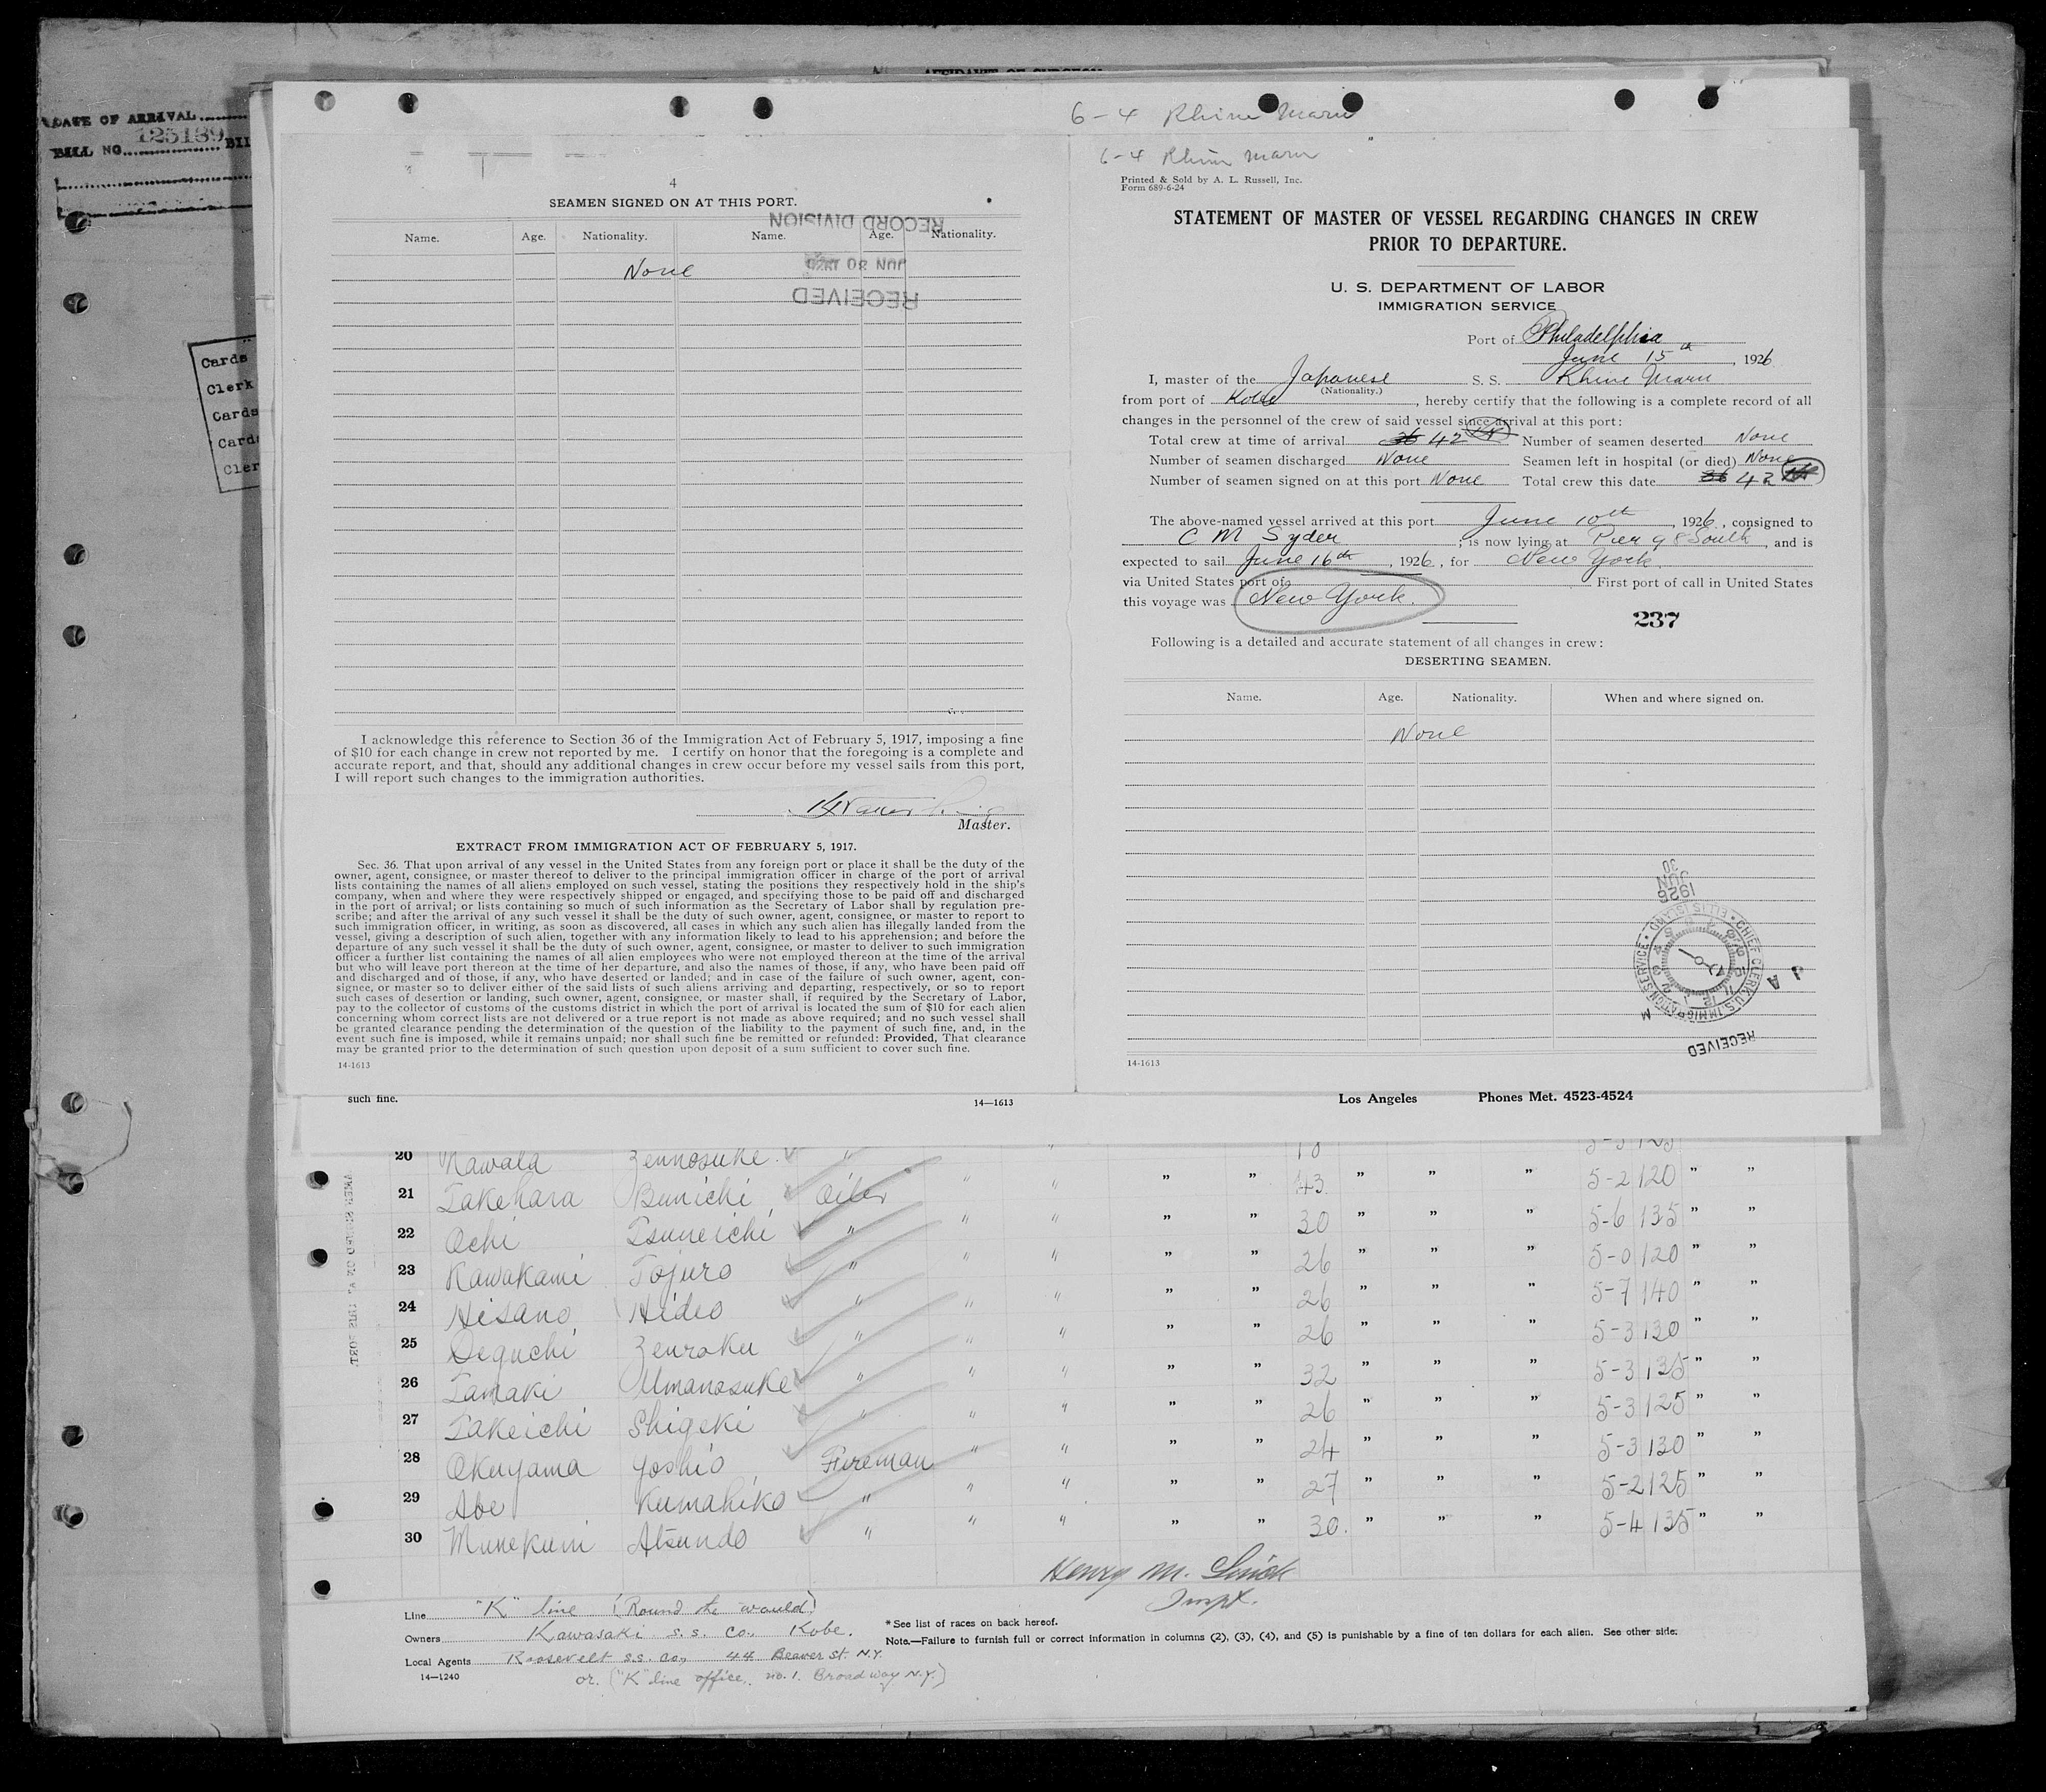 AFFIDAVIT OF SURGEON
DATE OF ARRIVAL
BILL NO. 125189 BIL
Cards
Clerk
Cards
Cards
Cler
4
SEAMEN SIGNED ON AT THIS PORT.
RECORD DIVISION
JUN 30
RECEIVED
Name. Age. Nationality. Name. Age. Nationality.
None
I acknowledge this reference to Section 36 of the Immigration Act of February 5, 1917, imposing a fine
of $10 for each change in crew not reported by me. I certify on honor that the foregoing is a complete and
accurate report, and that, should any additional changes in crew occur before my vessel sails from this port,
I will report such changes to the immigration authorities.
Master.
EXTRACT FROM IMMIGRATION ACT OF FEBRUARY 5, 1917.
Sec. 36. That upon arrival of any vessel in the United States from any foreign port or place it shall be the duty of the
owner, agent, consignee, or master thereof to deliver to the principal immigration officer in charge of the port of arrival
lists containing the names of all aliens employed on such vessel, stating the positions they respectively hold in the ship's
company, when and where they were respectively shipped or engaged, and specifying those to be paid off and discharged
in the port of arrival; or lists containing so much of such information as the Secretary of Labor shall by regulation pre-
scribe; and after the arrival of any such vessel it shall be the duty of such owner, agent, consignee, or master to report to
such immigration officer, in writing, as soon as discovered, all cases in which any such alien has illegally landed from the
vessel, giving a description of such alien, together with any information likely to lead to his apprehension; and before the
departure of any such vessel it shall be the duty of such owner, agent, consignee, or master to deliver to such immigration
officer a further list containing the names of all alien employees who were not employed thereon at the time of the arrival
but who will leave port thereon at the time of her departure, and also the names of those, if any, who have been paid off
and discharged and of those, if any, who have deserted or landed; and in case of the failure of such owner, agent, con-
signee, or master so to deliver either of the said lists of such aliens arriving and departing, respectively, or so to report
such cases of desertion or landing, such owner, agent, consignee, or master shall, if required by the Secretary of Labor,
pay to the collector of customs of the customs district in which the port of arrival is located the sum of $10 for each alien
concerning whom correct lists are not delivered or a true report is not made as above required; and no such vessel shall
be granted clearance pending the determination of the question of the liability to the payment of such fine, and, in the
event such fine is imposed, while it remains unpaid; nor shall such fine be remitted or refunded: Provided, That clearance
may be granted prior to the determination of such question upon deposit of a sum sufficient to cover such fine.
14-1613
6-4 Rhine Maru
6-4 Rhine Maru
Printed & Sold by A. L. Russell, Inc.
Form 689-6-24
STATEMENT OF MASTER OF VESSEL REGARDING CHANGES IN CREW
PRIOR TO DEPARTURE.
U. S. DEPARTMENT OF LABOR
IMMIGRATION SERVICE
Port of Philadelphia
June 15th, 1926
I, master of the Japanese S. S. Rhine Maru
(Nationality.)
from port of Kobe, hereby certify that the following is a complete record of all
changes in the personnel of the crew of said vessel since arrival at this port:
Total crew at time of arrival 36 42 Number of seamen deserted None
Number of seamen discharged None Seamen left in hospital (or died) None
Number of seamen signed on at this port None Total crew this date 36 42
The above-named vessel arrived at this port June 10th, 1926, consigned to
C M Syder; is now lying at Pier 98 South, and is
expected to sail June 16th, 1926, for New York.
via United States port of First port of call in United States
this voyage was New York.
237
Following is a detailed and accurate statement of all changes in crew:
DESERTING SEAMEN.
Name. Age. Nationality. When and where signed on.
None
1926
JUN
30
CHIEF CLERK, U.S. IMMIGRATION SERVICE • ELLIS ISLAND •
RECEIVED
14-1613
such fine. 14—1613 Los Angeles Phones Met. 4523-4524
20 Kawata Zennosuke "
21 Takehara Bunichi Oiler " " " " 43 " " " 5-2 120 " "
22 Ochi Tsuneichi " " " " " 30 " " " 5-6 135 " "
23 Kawakami Tojuro " " " " " 26 " " " 5-0 120 " "
24 Hisano Hideo " " " " " 26 " " " 5-7 140 " "
25 Deguchi Zenroku " " " " " 26 " " " 5-3 130 " "
26 Tamaki Umanosuke " " " " " 32 " " " 5-3 135 " "
27 Takeichi Shigeki " " " " " 26 " " " 5-3 125 " "
28 Okuyama Yoshio Fireman " " " " 24 " " " 5-3 130 " "
29 Abe Kumahiko " " " " " 27 " " " 5-2 125 " "
30 Munekuni Atsundo " " " " " 30. " " " 5-4 135 " "
Henry M.
Inspt.
Line "K" line (Round the would)
Owners Kawasaki s.s. Co., Kobe.
Local Agents Roosevelt s.s. Co, 44 Beaver St. N.Y.
14—1240 or. ("K" line office, no. 1. Broadway N.Y.)
*See list of races on back hereof.
Note.—Failure to furnish full or correct information in columns (2), (3), (4), and (5) is punishable by a fine of ten dollars for each alien. See other side.